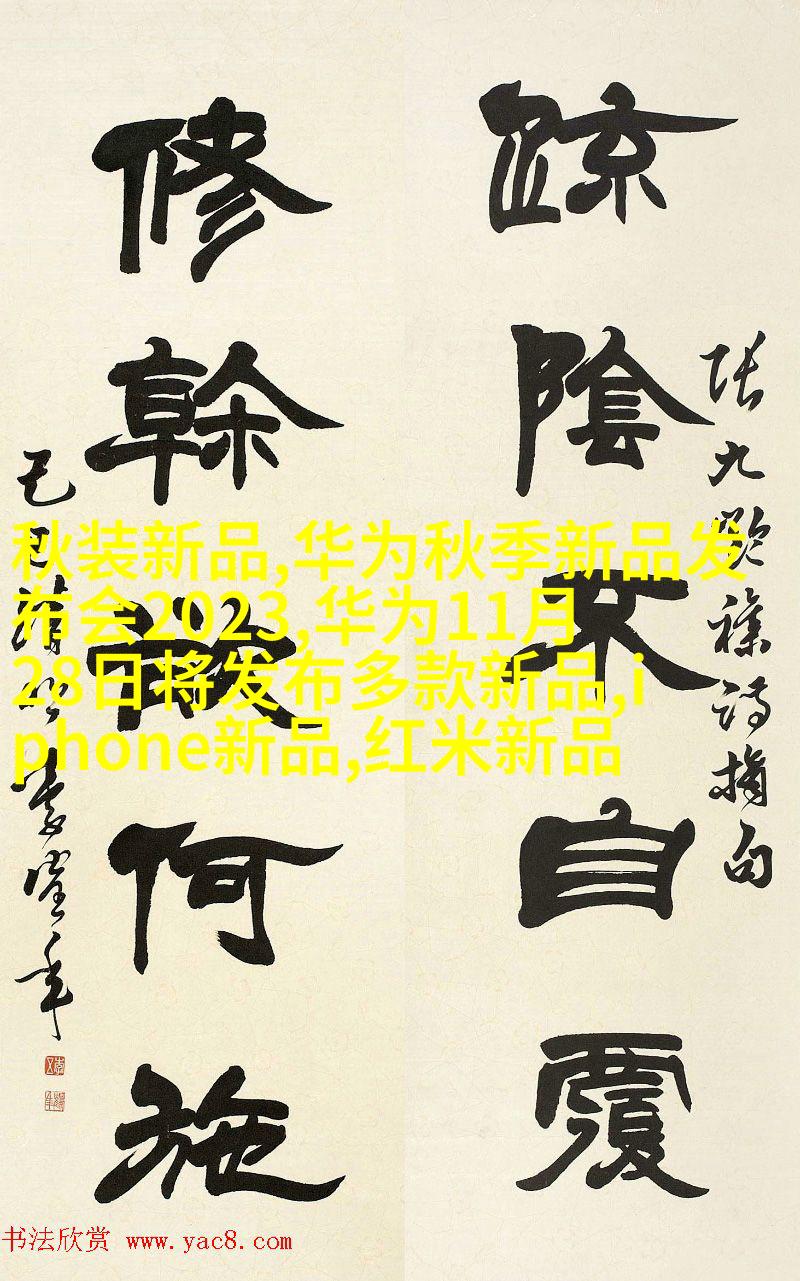 張九齡雜詩摘句
疎陰不自覆
修榦欲何施
己巳
秋装新品,华为秋季新品发
布会2023,华为11月
28日将发布多款新品,i
phone新品,红米新品
书法欣赏 www.yac8.com